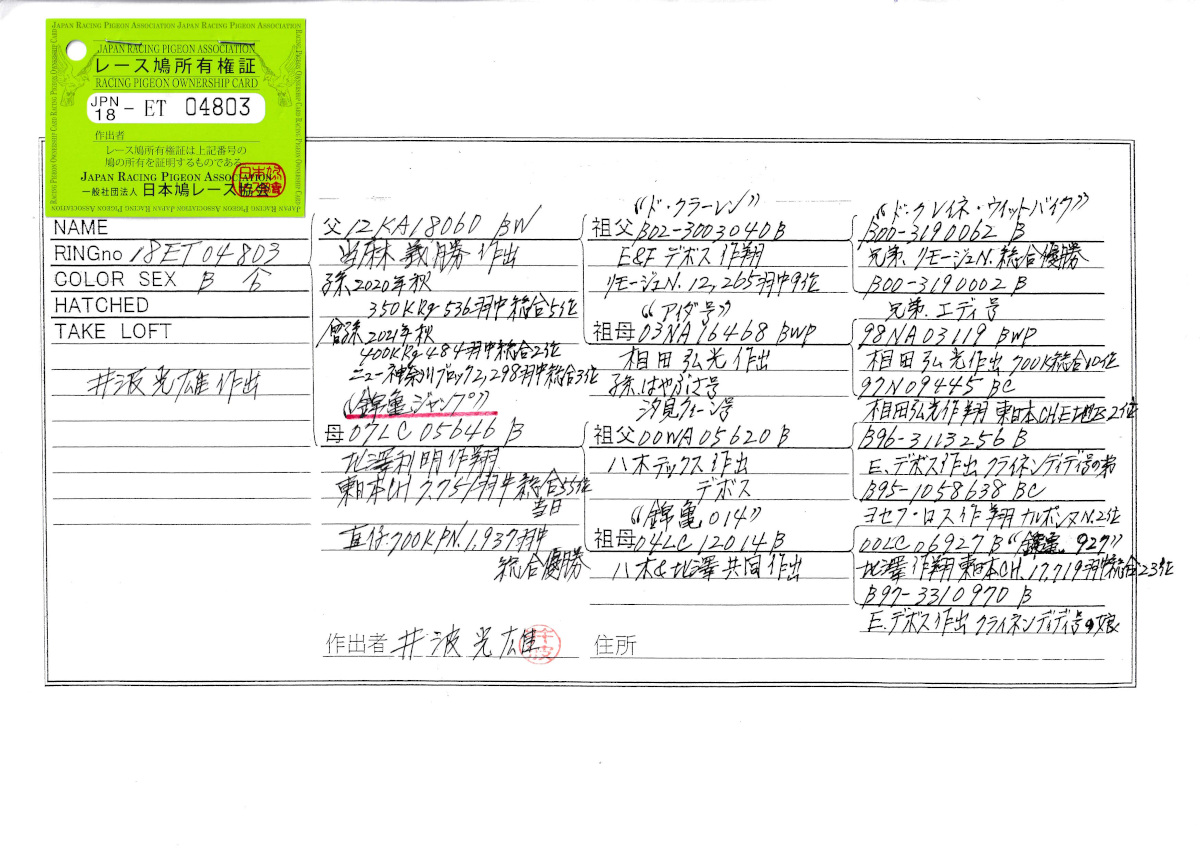 JAPAN RACING PIGEON ASSOCIATION JAPAN RACING PIGEON ASSOCIATION
JAPAN RACING PIGEON ASSOCIATION
レース鳩所有権証
RACING PIGEON OWNERSHIP CARD
JPN 18 - ET 04803
作出者
レース鳩所有権証は上記番号の
鳩の所有を証明するものである
JAPAN RACING PIGEON ASSOCIATION
一般社団法人 日本鳩レース協会
NAME
RINGno 18ET04803
COLOR SEX B 合
HATCHED
TAKE LOFT
井波光雄作出
父 12KA18060 BW
当麻義勝作出
孫2020年秋
350KRg 536羽中総合5位
曾孫2021年秋
400KRg 484羽中総合2位
ニュー神奈川ブロック2,298羽中総合3位
“錦亀ジャンプ”
母 07LC05646 B
北澤利明作翔
東日本CH 7,751羽中総合55位
当日
直仔700KPN.1,937羽中
総合優勝
作出者 井波光雄
“ド・クラーレン”
祖父 B02-3003040B
E&F デボス作翔
リモージュN.12,265羽中9位
“アイダ号”
祖母 03NA16468 BWP
相田弘光作出
孫はやぶさ号
汐見クィーン号
祖父 00WA05620 B
八木テックス作出
デボス
“錦亀014”
祖母 04LC12014 B
八木&北澤共同作出
住所
“ド・クレイネ・ウィットバイク”
B00-3190062 B
兄弟.リモージュN.総合優勝
B00-3190002 B
兄弟.エディ号
98NA03119 BWP
相田弘光作出 700K総合10位
97N09445 BC
相田弘光作翔 東日本CHE地区2位
B96-3113256 B
E.デボス作出クライネンディディ号の弟
B95-1058638 BC
ヨセフ・ロス作翔ナルボンヌN.2位
00LC06927 B “錦亀927”
北澤作翔東日本CH.17,719羽中総合23位
B97-3310970 B
E.デボス作出クライネンディディ号の娘